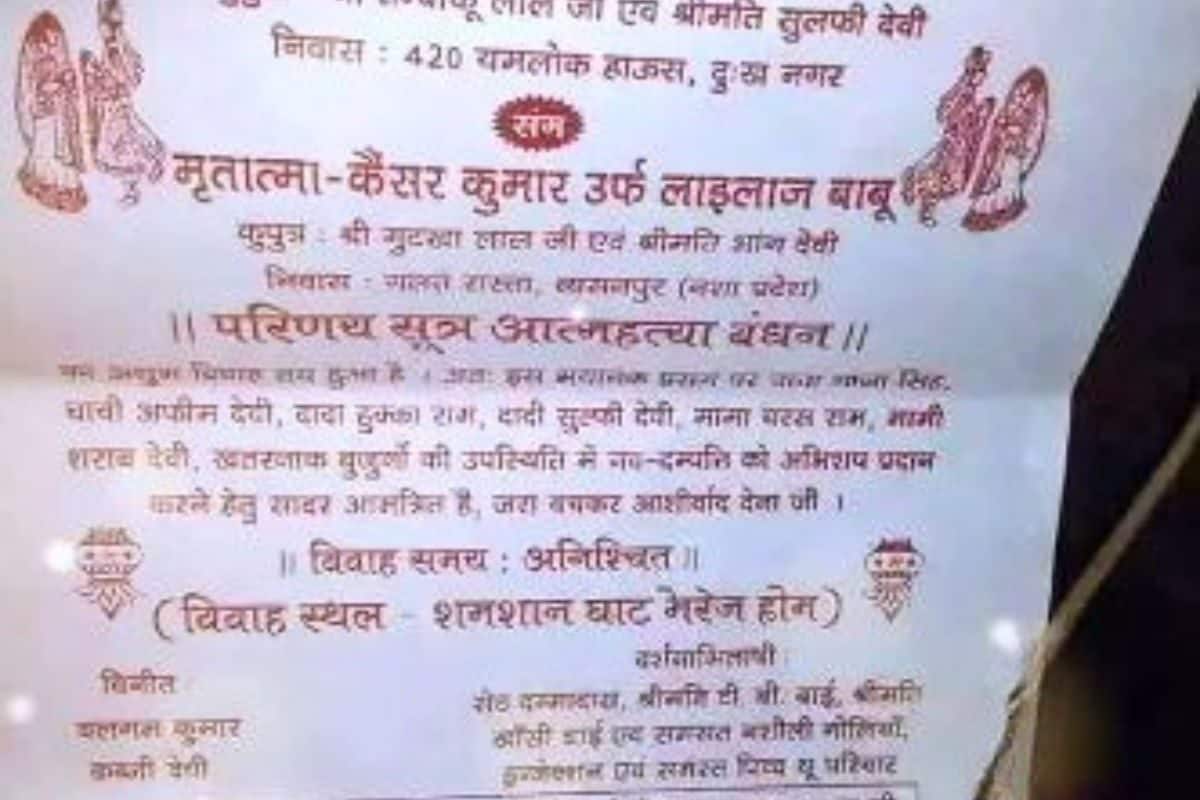 लाल जी एवं श्रीमति सुलफी देवी
निवास : 420 यमलोक हाऊस, दुःख नगर
संग
मृतात्मा-कैंसर कुमार उर्फ लाइलाज बाबू
कुपुत्र : श्री गुटखा लाल जी एवं श्रीमति भांग देवी
निवास : गलत रास्ता, व्यसनपुर (नशा प्रदेश)
|| परिणय सूत्र आत्महत्या बंधन ||
विवाह तय हुआ है । अतः इस भयानक प्रसंग पर गांजा सिंह,
चाची अफीम देवी, दादा हुक्का राम, दादी सुल्फी देवी, मामा चरस राम, मामी
शराब देवी, खतरनाक बुजुर्गो की उपस्थिति में नव-दम्पति को अभिशाप प्रदान
करने हेतु सादर आमंत्रित है, जरा बचकर आशीर्वाद देना जी ।
|| विवाह समय : अनिश्चित ||
( विवाह स्थल - शमशान घाट मेरेज होम )
दर्शनाभिलाषी :
विनीत :
सेठ दम्मादास, श्रीमति टी. बी. बाई, श्रीमति
बलगम कुमार
खाँसी बाई एवं समस्त नशीली गोलियाँ,
कब्जी देवी
इन्जेक्शन एवं समस्त पिच्च थू परिवार